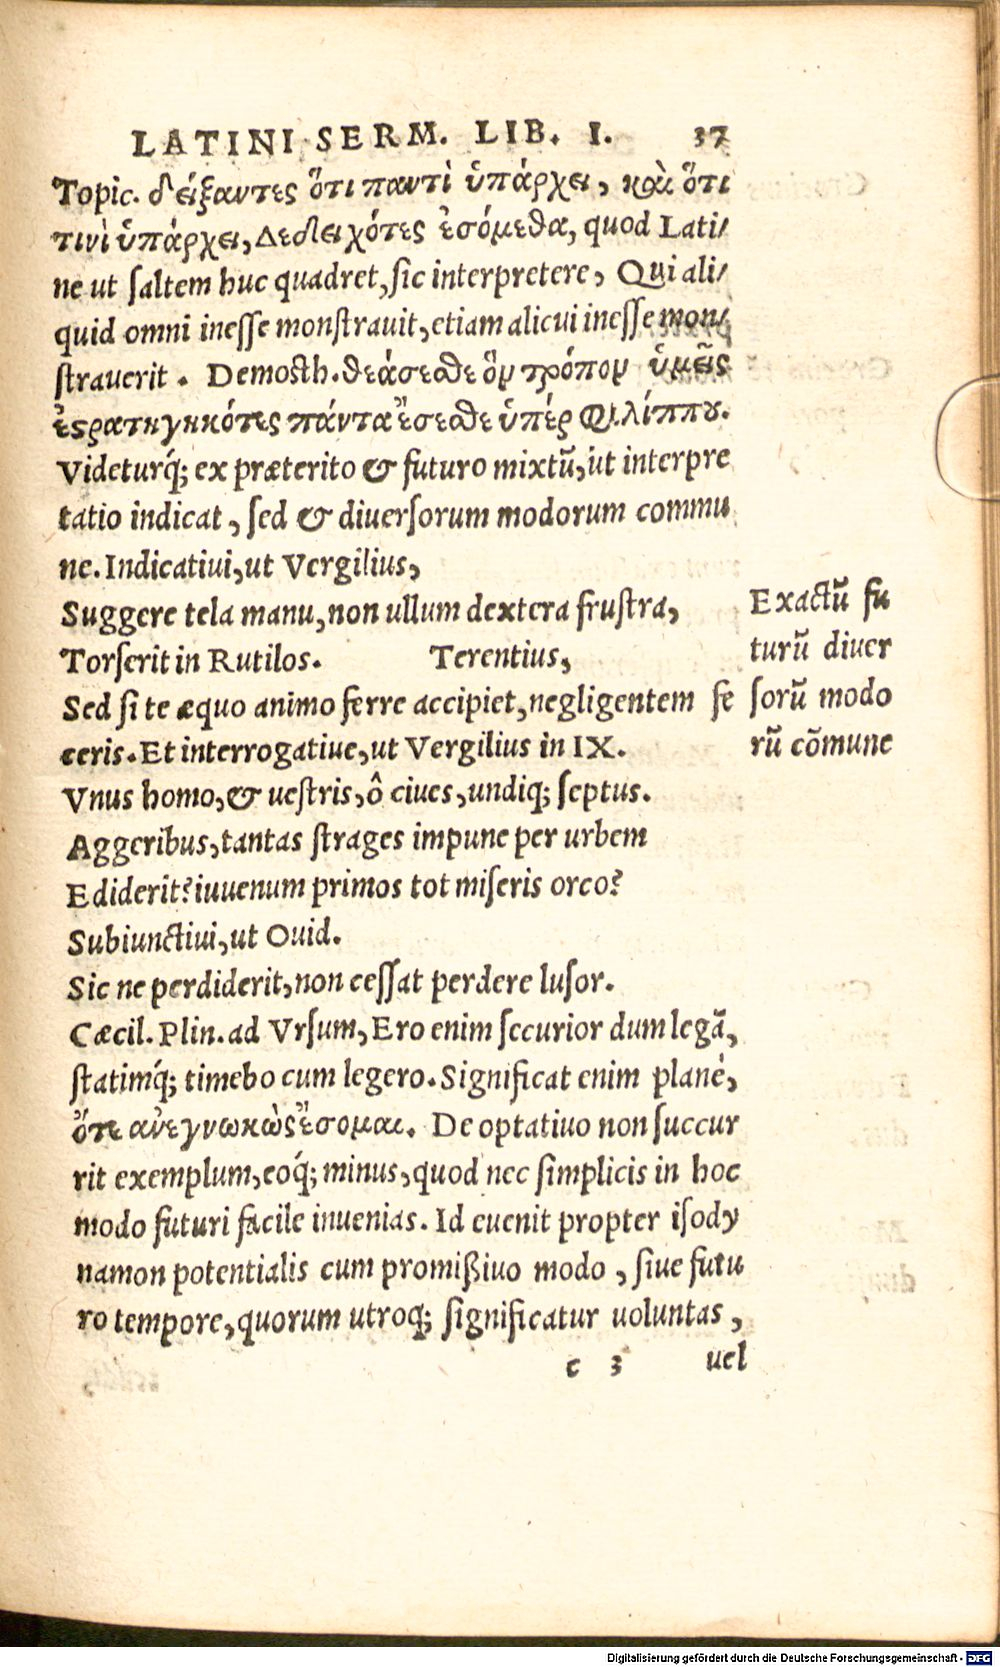 LATINI SERM. LIB. I. 37
Topic. δείξαντες ὅτι παντὶ ὑπάρχει, καὶ ὅτι
τινὶ ὑπάρχει, Δεδειχότες ἐσόμεθα, quod Lati/
ne ut saltem huc quadret, sic interpretere, Qui ali/
quid omni inesse monstravit, etiam alicui inesse mon/
straverit. Demosth. θεάσεσθε ὃν τρόπον ὑμεῖς
ἐστρατηγηκότες πάντα ἔσεσθε ὑπέρ Φιλίππου.
Videturq́; ex præterito & futuro mixtũ, ut interpre
tatio indicat, sed & diversorum modorum commu
ne. Indicativi, ut Vergilius,
Suggere tela manu, non ullum dextera frustra,
Torserit in Rutilos. Terentius,
Sed si te æquo animo ferre accipiet, negligentem fe
ceris. Et interrogative, ut Vergilius in IX.
Vnus homo, & uestris, ô cives, undiq; septus.
Aggeribus, tantas strages impune per urbem
Ediderit? iuvenum primos tot miseris orco?
Subiunctivi, ut Ovid.
Sic ne perdiderit, non cessat perdere lusor.
Cæcil. Plin. ad Vrsum, Ero enim securior dum legã,
statimq́; timebo cum legero. Significat enim planè,
ὅτε ἀνεγνωκὼς ἔσομαι. De optativo non succur
rit exemplum, eoq́; minus, quod nec simplicis in hoc
modo futuri facile invenias. Id evenit propter isody
namon potentialis cum promißivo modo, sive futu
ro tempore, quorum utroq; significatur voluntas,
c 3 vel
Exactũ fu
turũ diver
sorũ modo
rũ cõmune
Digitalisierung gefördert durch die Deutsche Forschungsgemeinschaft - DFG